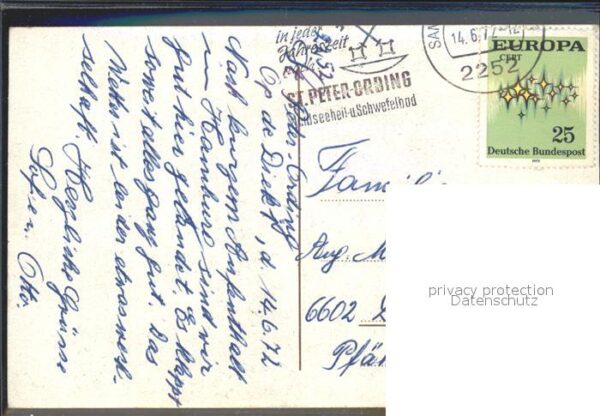 in jeder
Jahreszeit
ST. PETER-ORDING
Nordseeheil- u. Schwefelbad
SAN
14.6.72-12
2252
EUROPA
CEPT
25
Deutsche Bundespost
1972
2252
Peter-Ording
Op de Diek, d. 14.6.72
Nach kurzem Aufenthalt
in Hamburg sind wir
gut hier gelandet. Es klappt
soweit alles ganz gut. Das
Wetter ist leider etwas wech-
selhaft. Herzliche Grüsse
Otto.
Famili
Aug. M
6602
Pfä
privacy protection
Datenschutz